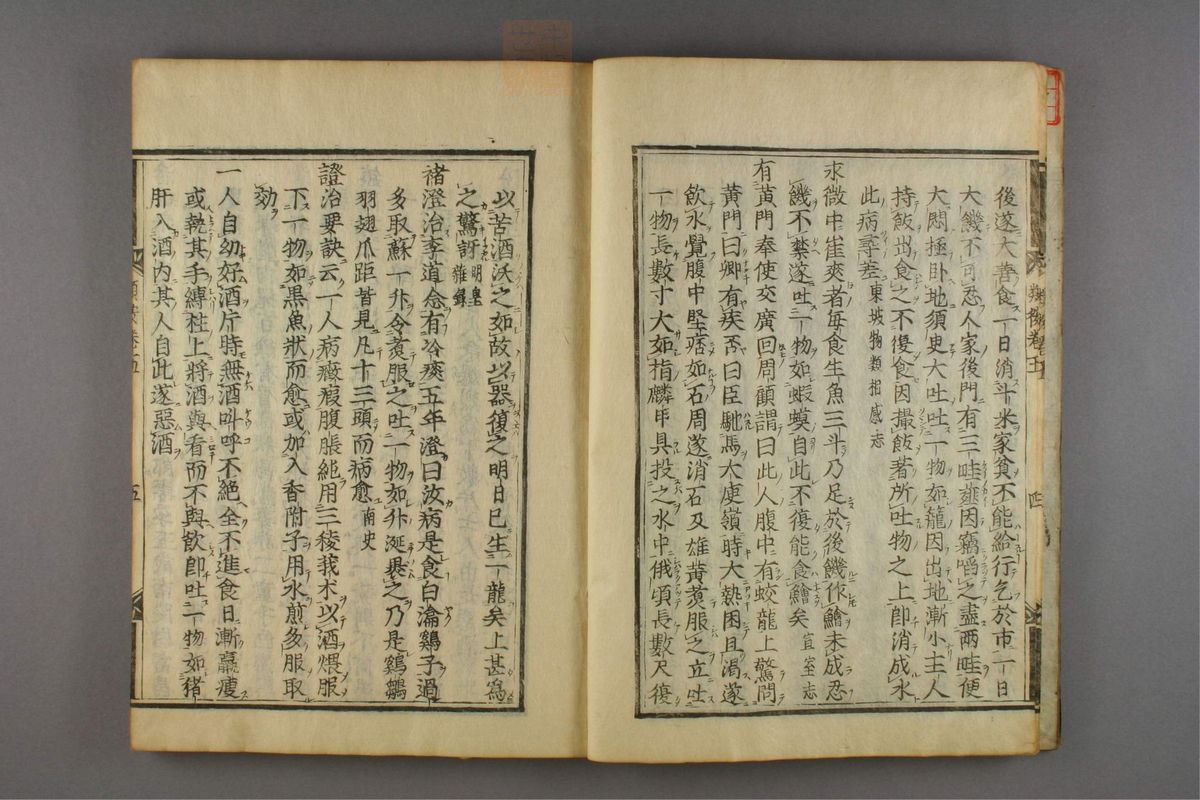 後遂大善食一日消斗米家貧不能給行乞於市一日
大饑不可忍人家後門有三畦薤因竊啗之盡兩畦便
大悶極臥地須臾大吐吐一物如籠因出地漸小主人
持飯出食之不復食因撮飯著所吐物之上卽消成水
此病尋差 東坡物類相感志
永徽中崔爽者每食生魚三斗乃足於後饑作鱠未成忍
饑不禁遂吐一物如蝦蟆自此不復能食鱠矣 宣室志
有黃門奉使交廣回周顧謂曰此人腹中有蛟龍上驚問
黃門曰卿有疾否曰臣馳馬大庾嶺時大熱困且渴遂
飮水覺腹中堅痞如石周遂消石及雄黃煑服之立吐
一物長數寸大如指鱗甲具投之水中俄頃長數尺復
以苦酒沃之如故以器復之明日已生一龍矣上甚爲
之驚訝 明皇雜錄
褚澄治李道念有冷痰五年澄曰汝病是食白瀹鷄子過
多取蘇一升令煑服之吐一物如升涎裹之乃是鷄雛
羽翅爪距皆見凡十三頭而病愈 南史
證治要訣云一人病癥瘕腹脹純用三稜莪朮以酒煨服
下一物如黑魚狀而愈或加入香附子用水煎多服取
効
一人自幼好酒片時無酒叫呼不絕全不進食日漸羸瘦
或執其手縛柱上將酒與看而不與飮卽吐一物如猪
肝入酒內其人自此遂惡酒
四
五